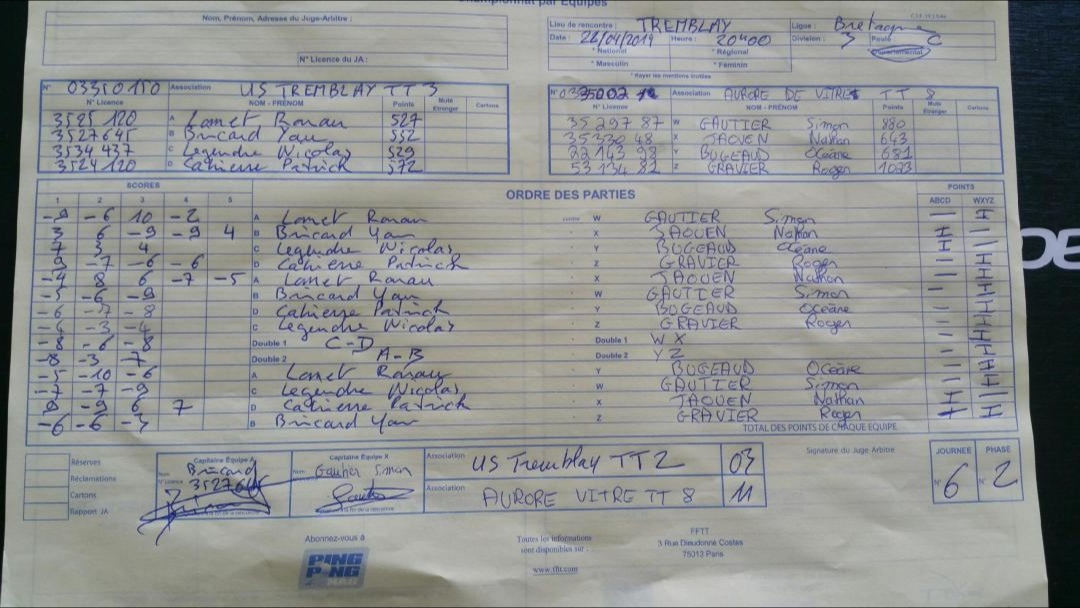 Championnat par Equipes
Nom, Prénom, Adresses du Juge-Arbitre :
N° Licence du JA :
Lieu de rencontre : TREMBLAY
Ligue : Bretagne
Date : 26/04/2019 Heure : 20H00
Division : 3 Poule C
* National * Régional Départemental
* Masculin * Féminin
* Rayer les mentions inutiles
N° 03350150 Association US TREMBLAY TT 3
N° Licence NOM - PRÉNOM Points Muté Etranger Cartons
3525 120 A Lamet Ronan 527
3527645 B Bricard Yan 552
3534 437 C Legendre Nicolas 529
3524 120 D Cahierre Patrick 572
Association AURORE DE VITRE TT 8
N° Licence NOM - PRÉNOM Points Muté Etranger Cartons
35 297 87 W GAUTIER Simon 880
35 330 48 X JAOUEN Nathan 643
22 143 98 Y BUGEAUD Océane 681
53 134 82 Z GRAVIER Roger 1023
SCORES ORDRE DES PARTIES POINTS
1 2 3 4 5 ABCD WXYZ
-9 -6 10 -2 A Lamet Ronan contre W GAUTIER Simon
3 6 -9 -9 4 B Bricard Yan X JAOUEN Nathan
7 3 4 C Legendre Nicolas Y BUGEAUD Océane
9 -7 -6 -6 D Cahierre Patrick Z GRAVIER Roger
-4 8 6 -7 -5 A Lamet Ronan X JAOUEN Nathan
-5 -6 -9 B Bricard Yan W GAUTIER Simon
-6 -7 -8 D Cahierre Patrick Y BUGEAUD Océane
-6 -3 -4 C Legendre Nicolas Z GRAVIER Roger
-8 -6 -8 Double 1 C-D Double 1 W X
-8 -3 -7 Double 2 A-B Double 2 Y Z
-5 -10 -6 A Lamet Ronan Y BUGEAUD Océane
-7 -7 -9 C Legendre Nicolas W GAUTIER Simon
9 -9 6 7 D Cahierre Patrick X JAOUEN Nathan
-6 -6 -7 B Bricard Yan Z GRAVIER Roger
TOTAL DES POINTS DE CHAQUE EQUIPE
Réserves
Réclamations
Cartons
Rapport JA
Capitaine Équipe A
Nom Bricard
N° Licence 3527645
Capitaine Équipe X
Nom Gautier Simon
Association US Tremblay TT2 03
Association AURORE VITRE TT 8 11
Signature du Juge Arbitre
JOURNEE PHASE
N° 6 N° 2
Abonnez-vous à
PING PONG MAG
Toutes les informations
sont disponibles sur :
www.fftt.com
FFTT
3 Rue Dieudonné Costes
75013 Paris